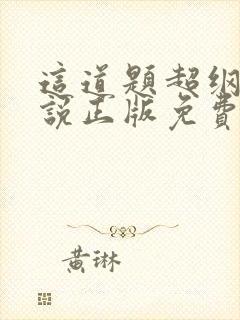 這道題超纲
說正版免費
黄琳